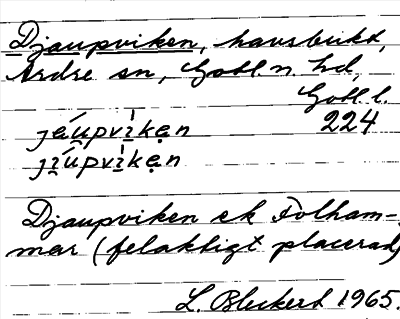 Djaupviken, havsbukt,
Ardre sn, Gotl. n. hd,
Gotl. l.
jáu̯pvìkən 224
jíu̯pvìkən
Djaupviken ek Folham-
mar (felaktigt placerad)
L. Bleckert 1965.